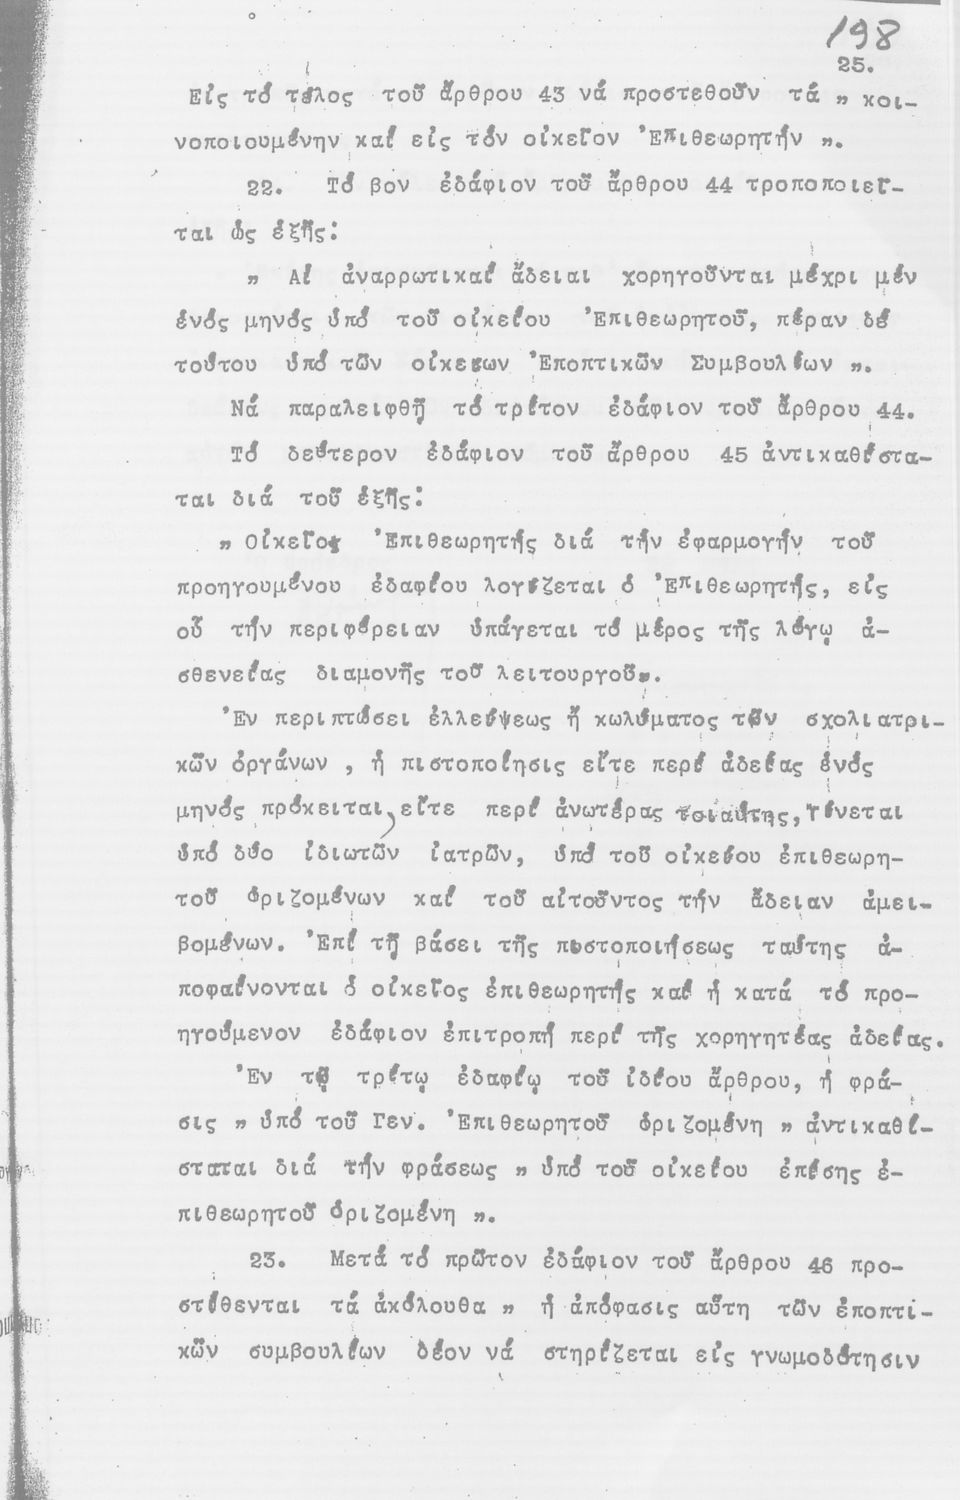 198
25.
Εἰς τό τέλος τοῦ ἄρθρου 43 νά προστεθοῦν τά " κοι-
νοποιουμένην καί εἰς τόν οἰκεῖον Ἐπιθεωρητήν ".
22. Τό βον ἐδάφιον τοῦ ἄρθρου 44 τροποποιεῖ-
ται ὡς ἑξῆς:
" Αἱ ἀναρρωτικαί ἄδειαι χορηγοῦνται μέχρι μέν
ἑνός μηνός ὑπό τοῦ οἰκείου Ἐπιθεωρητοῦ, πέραν δέ
τούτου ὑπό τῶν οἰκείων Ἐποπτικῶν Συμβουλίων ".
Νά παραλειφθῇ τό τρίτον ἐδάφιον τοῦ ἄρθρου 44.
Τό δεύτερον ἐδάφιον τοῦ ἄρθρου 45 ἀντικαθίστα-
ται διά τοῦ ἑξῆς:
" Οἰκεῖος Ἐπιθεωρητής διά τήν ἐφαρμογήν τοῦ
προηγουμένου ἐδαφίου λογίζεται ὁ Ἐπιθεωρητής, εἰς
οὗ τήν περιφέρειαν ὑπάγεται τό μέρος τῆς λόγῳ ἀ-
σθενείας διαμονῆς τοῦ λειτουργοῦ".
Ἐν περιπτώσει ἐλλείψεως ἤ κωλύματος τῶν σχολιατρι-
κῶν ὀργάνων , ἡ πιστοποίησις εἴτε περί ἀδείας ἑνός
μηνός πρόκειται, εἴτε περί ἀνωτέρας τοιαύτης, γίνεται
ὑπό δύο ἰδιωτῶν ἰατρῶν, ὑπό τοῦ οἰκείου ἐπιθεωρη-
τοῦ ὁριζομένων καί τοῦ αἰτοῦντος τήν ἄδειαν ἀμει-
βομένων. Ἐπί τῇ βάσει τῆς πιστοποιήσεως ταύτης ἀ-
ποφαίνονται ὁ οἰκεῖος ἐπιθεωρητής καί ἡ κατά τό προ-
ηγούμενον ἐδάφιον ἐπιτροπή περί τῆς χορηγητέας ἀδείας.
Ἐν τῷ τρίτῳ ἐδαφίῳ τοῦ ἰδίου ἄρθρου, ἡ φρά-
σις " ὑπό τοῦ Γεν. Ἐπιθεωρητοῦ ὁριζομένη " ἀντικαθί-
σταται διά τήν φράσεως " ὑπό τοῦ οἰκείου ἐπίσης ἐ-
πιθεωρητοῦ ὁριζομένη ".
23. Μετά τό πρῶτον ἐδάφιον τοῦ ἄρθρου 46 προ-
στίθενται τά ἀκόλουθα " ἡ ἀπόφασις αὕτη τῶν ἐποπτι-
κῶν συμβουλίων δέον νά στηρίζεται εἰς γνωμοδότησιν